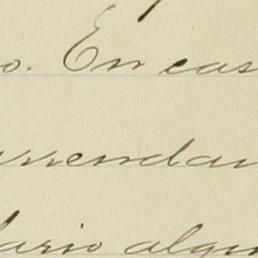 o. En cas
arrendam
dario algun